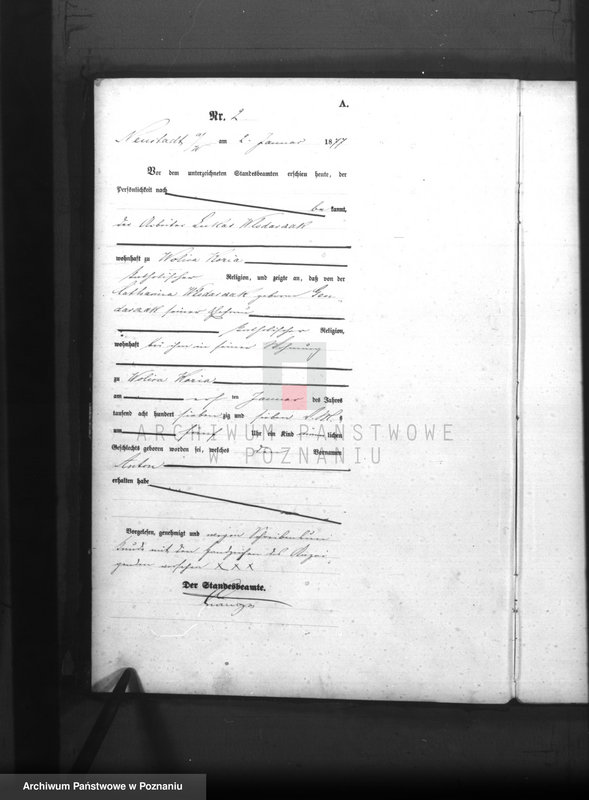 A.
Nr. 2
Neustadt a/W am 2. Januar 1877
Vor dem unterzeichneten Standesbeamten erschien heute, der
Persönlichkeit nach
be kannt,
der Arbeiter Lukas
wohnhaft zu Wolica
katholischer Religion, und zeigte an, daß von der
Catharina geborene
seiner Ehefrau
katholischer Religion,
wohnhaft bei ihm in seiner Wohnung
zu Wolica
am ten Januar des Jahres
tausend acht hundert sieben zig und sieben
um Uhr ein Kind lichen
Geschlechts geboren worden sei, welches den Vornamen
Anton
erhalten habe
Vorgelesen, genehmigt und wegen Schreibensun
kunde mit den Handzeichen des Anzei
genden versehen XXX
Der Standesbeamte.
ARCHIWUM PAŃSTWOWE
W POZNANIU
Archiwum Państwowe w Poznaniu